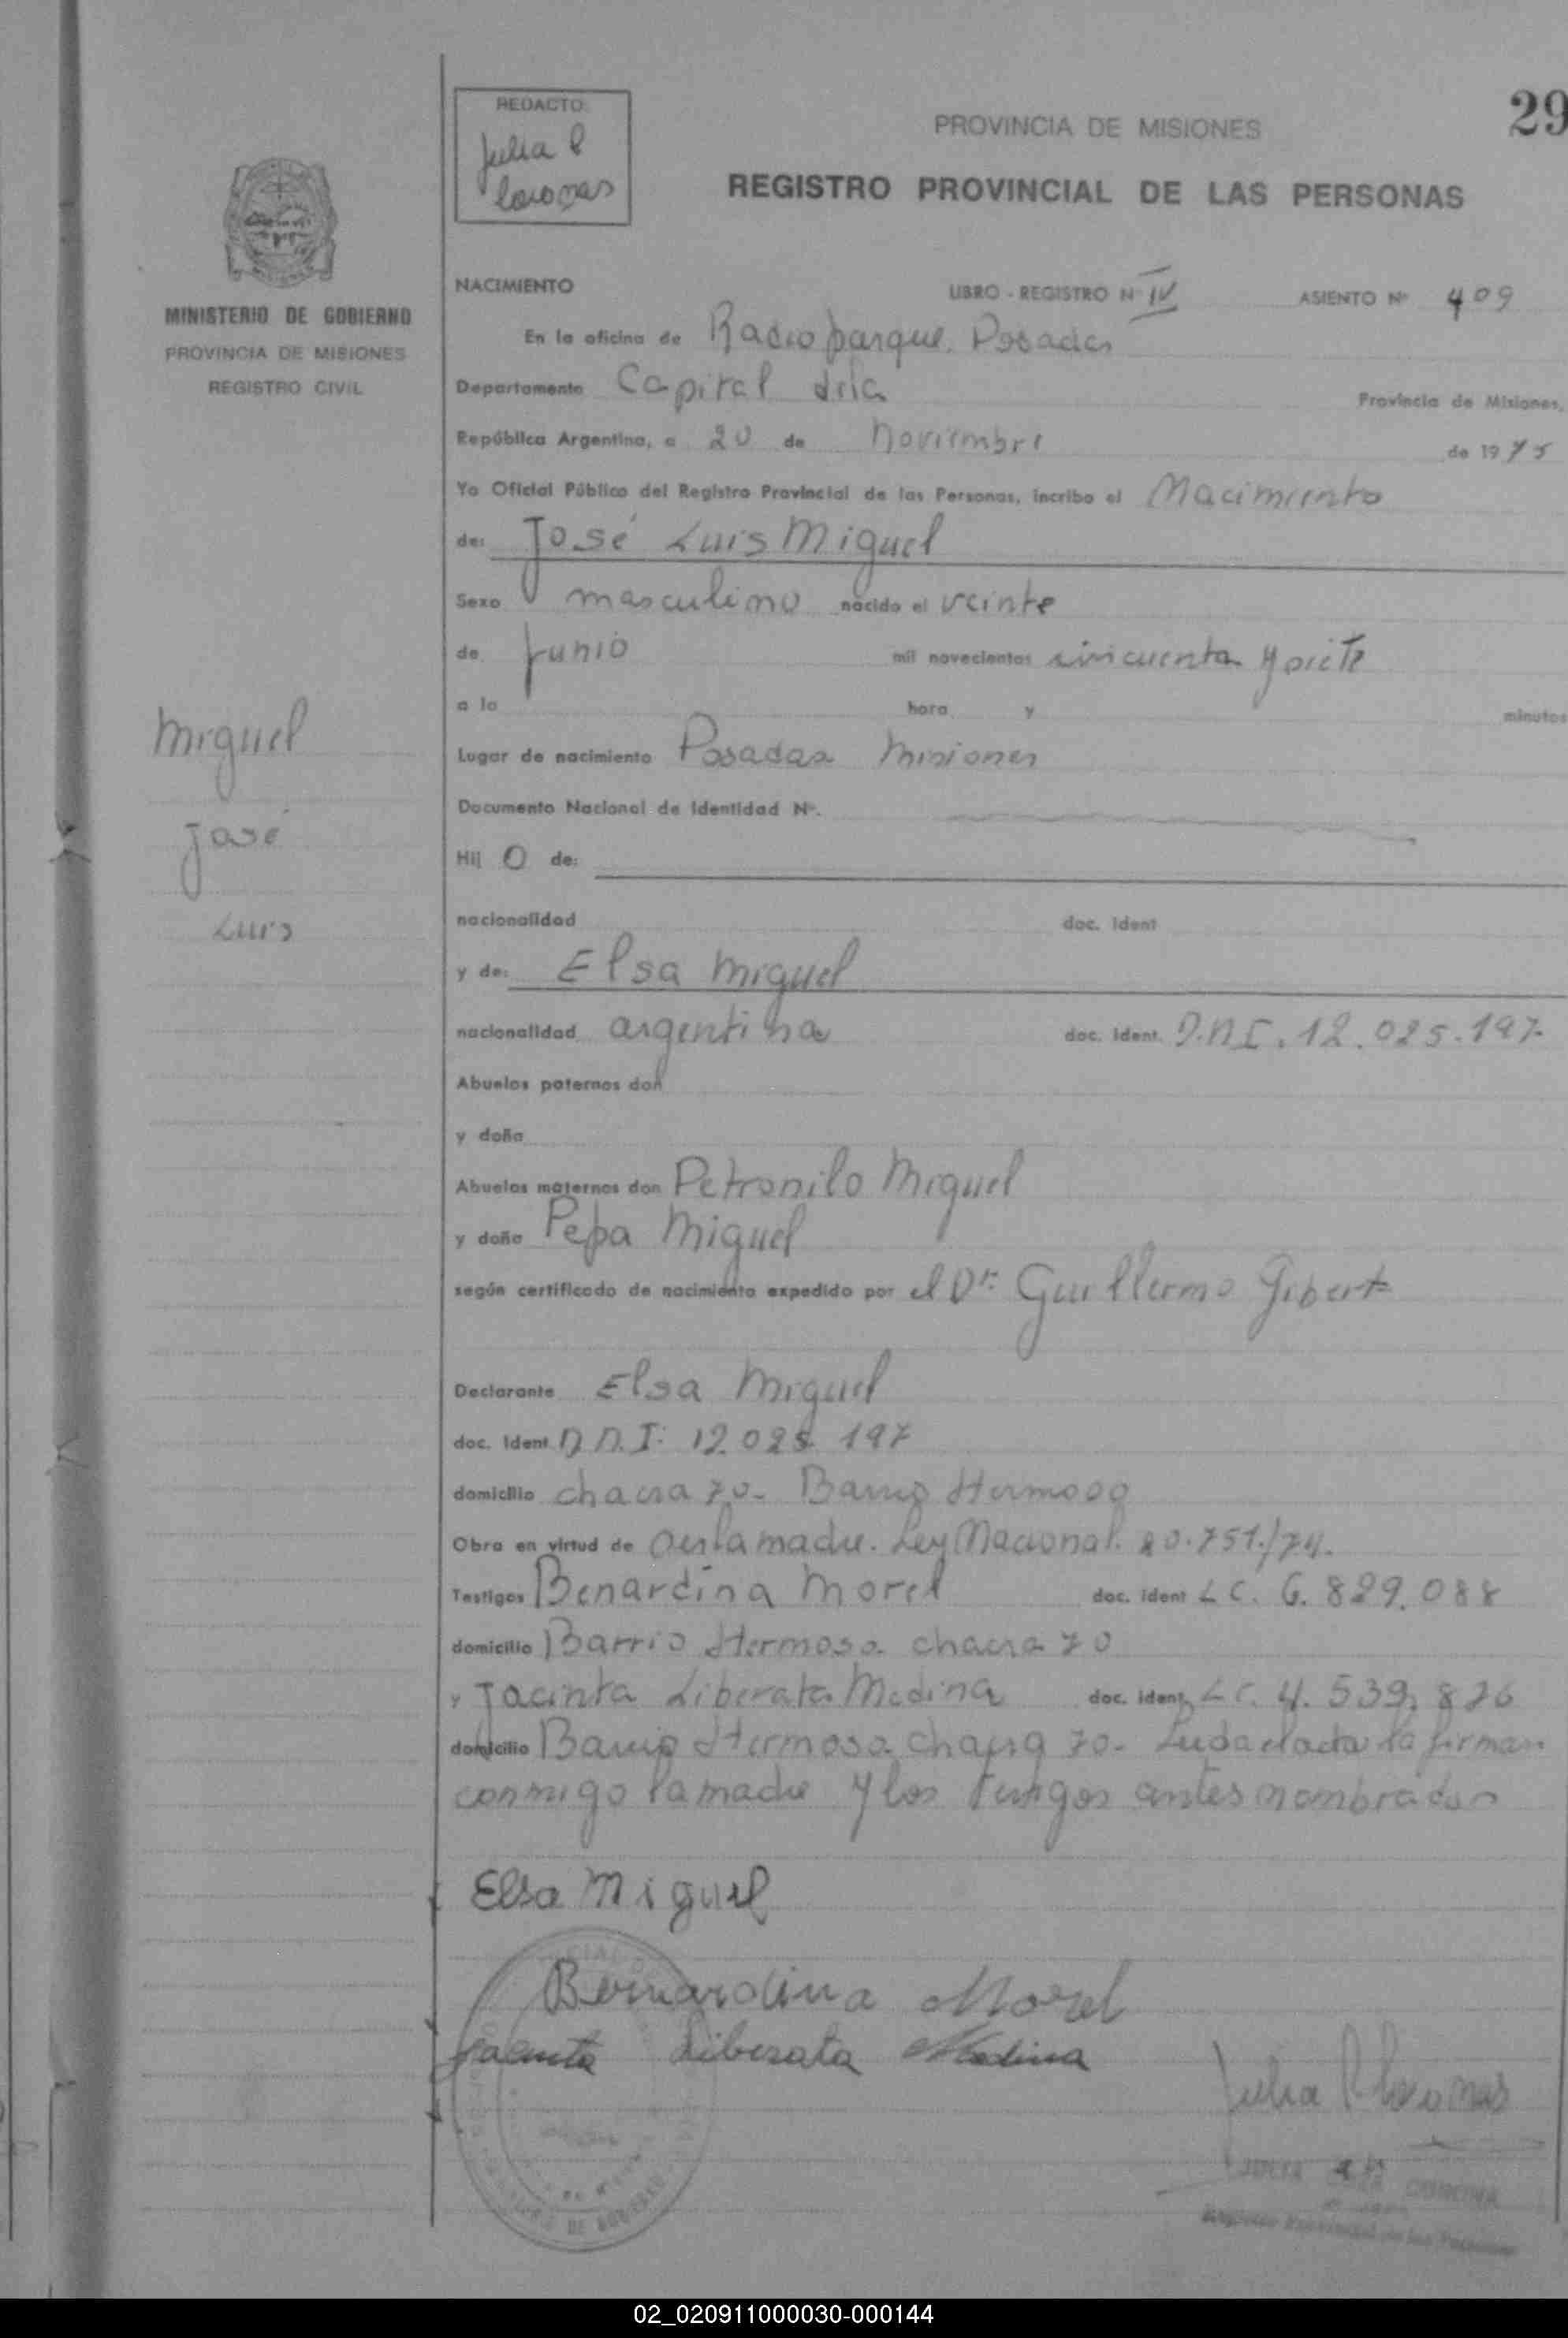 REDACTO
Julia
29
PROVINCIA DE MISIONES
REGISTRO PROVINCIAL DE LAS PERSONAS
MINISTERIO DE GOBIERNO
PROVINCIA DE MISIONES
REGISTRO CIVIL
NACIMIENTO LIBRO - REGISTRO Nº IV ASIENTO Nº 409
En la oficina de Radio parque. Posadas
Departamento Capital de la Provincia de Misiones,
República Argentina, a 20 de noviembre de 1975
Yo Oficial Público del Registro Provincial de las Personas, incribo el Nacimiento
de: José Luis Miguel
Sexo masculino nacido el veinte
de junio mil novecientos cincuenta y siete
a la hora y minutos
Lugar de nacimiento Posadas Misiones
Documento Nacional de Identidad Nº.
Hij O de:
nacionalidad doc. Ident
y de: Elsa Miguel
nacionalidad argentina doc. Ident. D.N.I. 12.025.197
Abuelos paternos don
y doña
Abuelos maternos don Petronilo Miguel
y doña Pepa Miguel
según certificado de nacimiento expedido por el Dr. Guillermo Gibert
Declarante Elsa Miguel
doc. Ident D.N.I. 12.025.197
domicilio chacra 70- Barrio Hermoso
Obra en virtud de ser la madre. Ley Nacional. 20.751./74.
Testigos Benardina Morel doc. Ident L C. 6.829.088
domicilio Barrio Hermoso chacra 70
y Jacinta Liberata Medina doc. Ident, L C. 4.539.826
domicilio Barrio Hermoso chacra 70- Leida el acta la firman
conmigo la madre y los testigos antes nombrados
Miguel
José
Luis
Elsa Miguel
Bernardina Morel
Jacinta Liberata Medina
Julia
Registro Provincial de las Personas
02_020911000030-000144